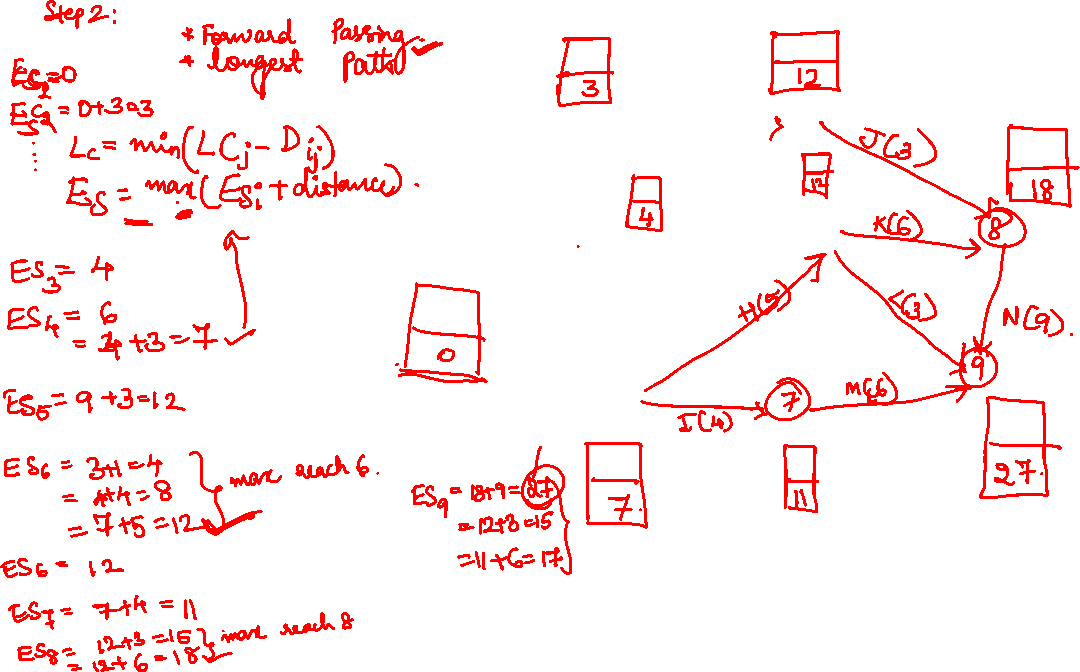 Step 2:
* Forward Passing
* longest Path
ES₁=0
ES₂ = 0+3=3
Lc = min(LCj - Dij)
ES = max(ESi + distance).
ES₃ = 4
ES₄ = 6
= 4+3=7
ES₅ = 9+3=12
ES₆ = 3+1=4
= 4+4=8
= 7+5=12
max reach 6.
ES₆ = 12
ES₇ = 7+4=11
ES₈ = 12+3=15
= 12+6=18
max reach 8
ES₉ = 18+9=27
=12+3=15
=11+6=17
3
12
J(3)
18
12
4
K(6)
8
H(5)
L(3)
N(9).
0
9
7
M(6)
I(4)
7
11
27.